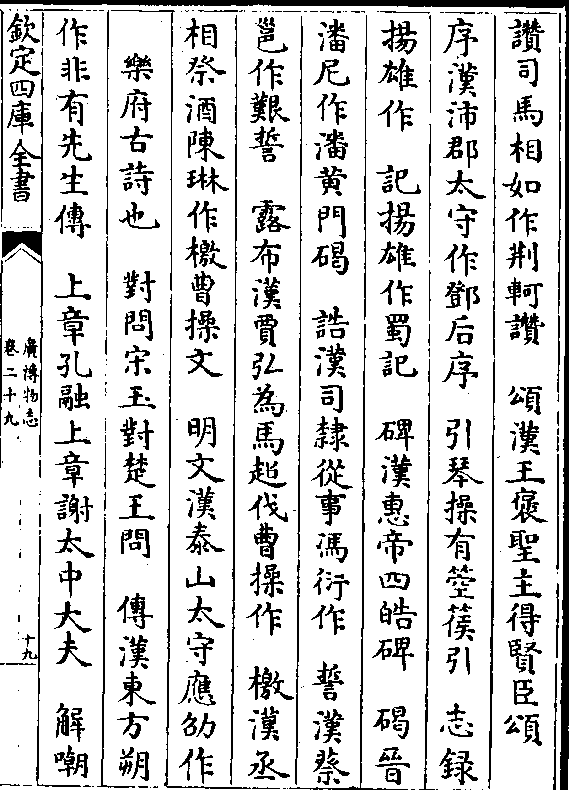 讚司馬相如作荆軻讚　頌漢王襃聖主得賢臣頌
序漢沛郡太守作鄧后序　引琴操有箜篌引　志録
揚雄作　記揚雄作蜀記　碑漢惠帝四皓碑　碣晉
潘尼作潘黄門碣　誥漢司隸從事馮衍作　誓漢蔡
邕作艱誓　露布漢賈弘為馬超伐曹操作　檄漢丞
相祭酒陳琳作檄曹操文　明文漢泰山太守應劭作
樂府古詩也　對問宋玉對楚王問　傳漢東方朔
作非有先生傳　上章孔融上章謝太中大夫　解嘲
欽定四庫全書
廣博物志
卷二十九
十九